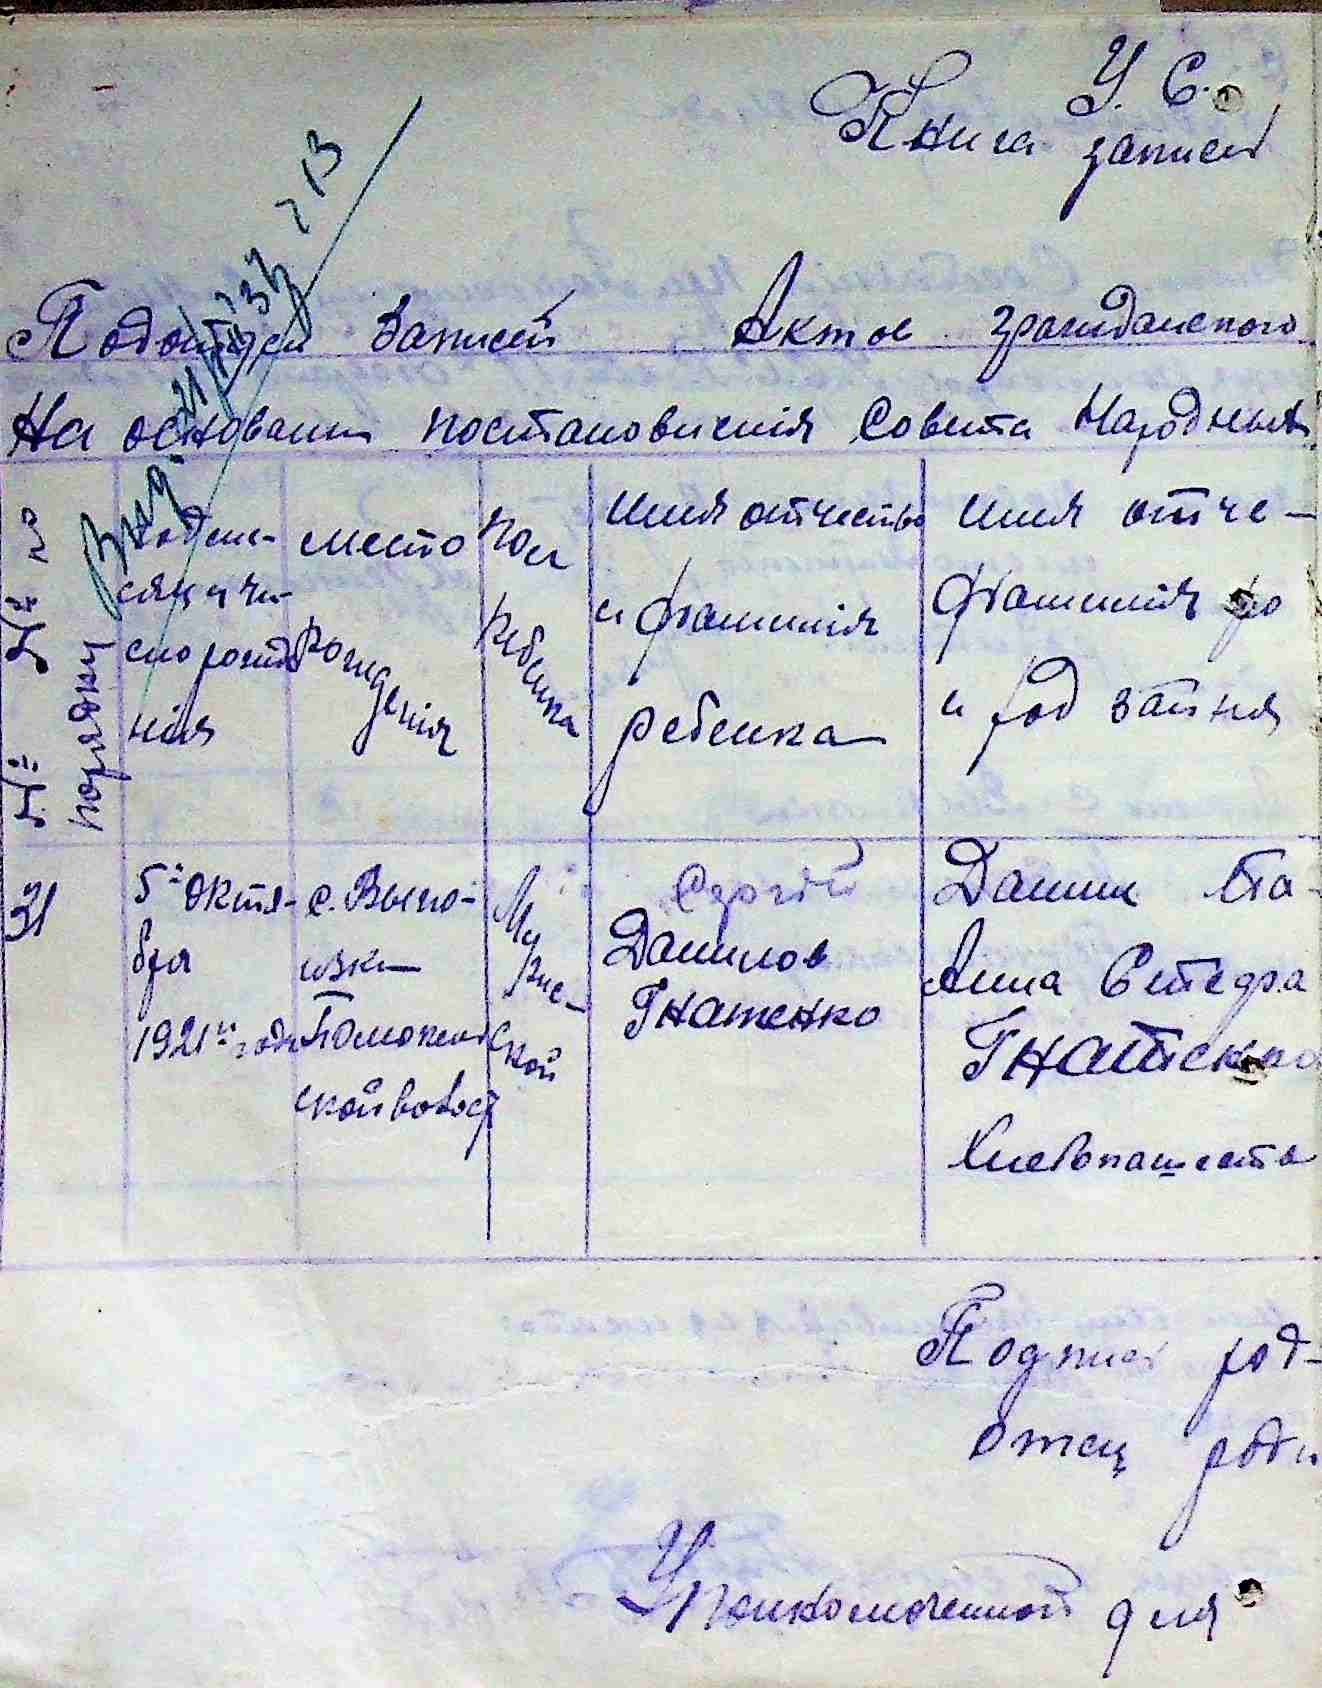 У. С.
Книга записей
Подотдел Записей Актов гражданского
На основании постановления Совета Народных
№№ по порядку
Год ме-
сяц и чи-
сло рожде
нія
место
рождения
пол
ребенка
имя отчество
и фамилия
ребенка
имя отче-
фамилия ро
и род занят
31
5го Октя-
бря
1921го года
с. Выпо-
изки
Помокель
ской волост
Мужс-
ской
Сергей
Данилов
Гнатенко
Данил
Анна
Гнатенко
Хлебопашеств
Подписи род-
отец роди
Уполномоченной для